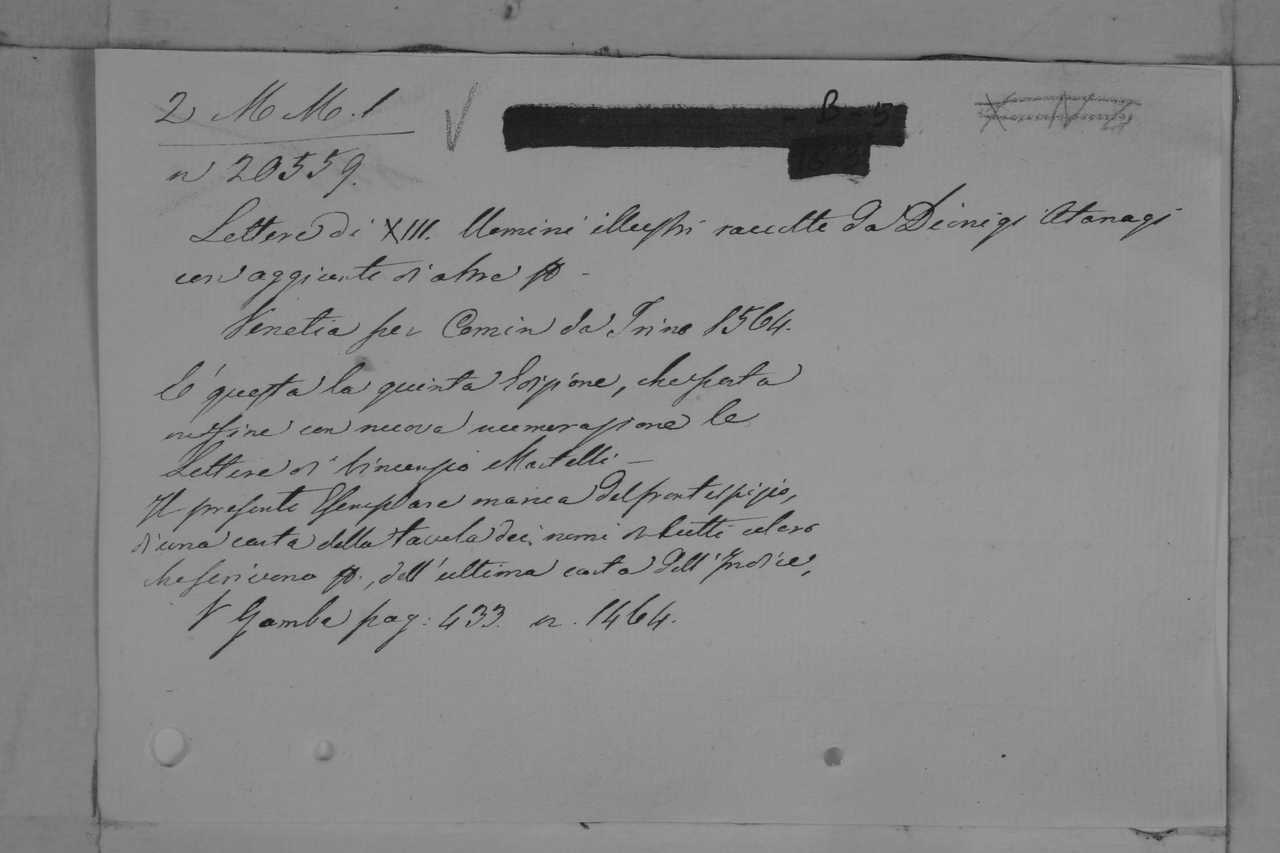 2 M M. 1
- B - 5
n 20559.
Lettere di XIII. Uomini illustri raccolte da Dionigi Atanagi
con aggiunte di altre
Venetia per Comin da Trino 1564.
E' questa la quinta Edizione, che porta
infine con nuova numerazione le
Lettere di Vincenzio Martelli —
Il presente Esemplare manca del frontespizio,
d'una carta della tavola dei nomi di tutti coloro
che scrivono, dell'ultima carta dell'Indice,
V Gamba pag: 433. n. 1464.